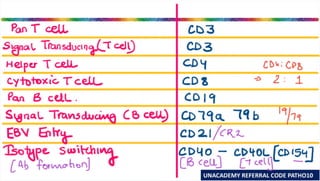 Pan T cell CD3
Signal Transducing (T cell) CD3
Helper T cell CD4 CD4:CD8
Cytotoxic T cell CD8 → 2:1
Pan B cell. CD19
Signal Transducing (B cell) CD79a 79b 19/79
EBV Entry CD21/CR2
Isotype switching CD40 - CD40L [CD154]
[Ab formation] [B cell] [T cell]
UNACADEMY REFERRAL CODE PATHO10